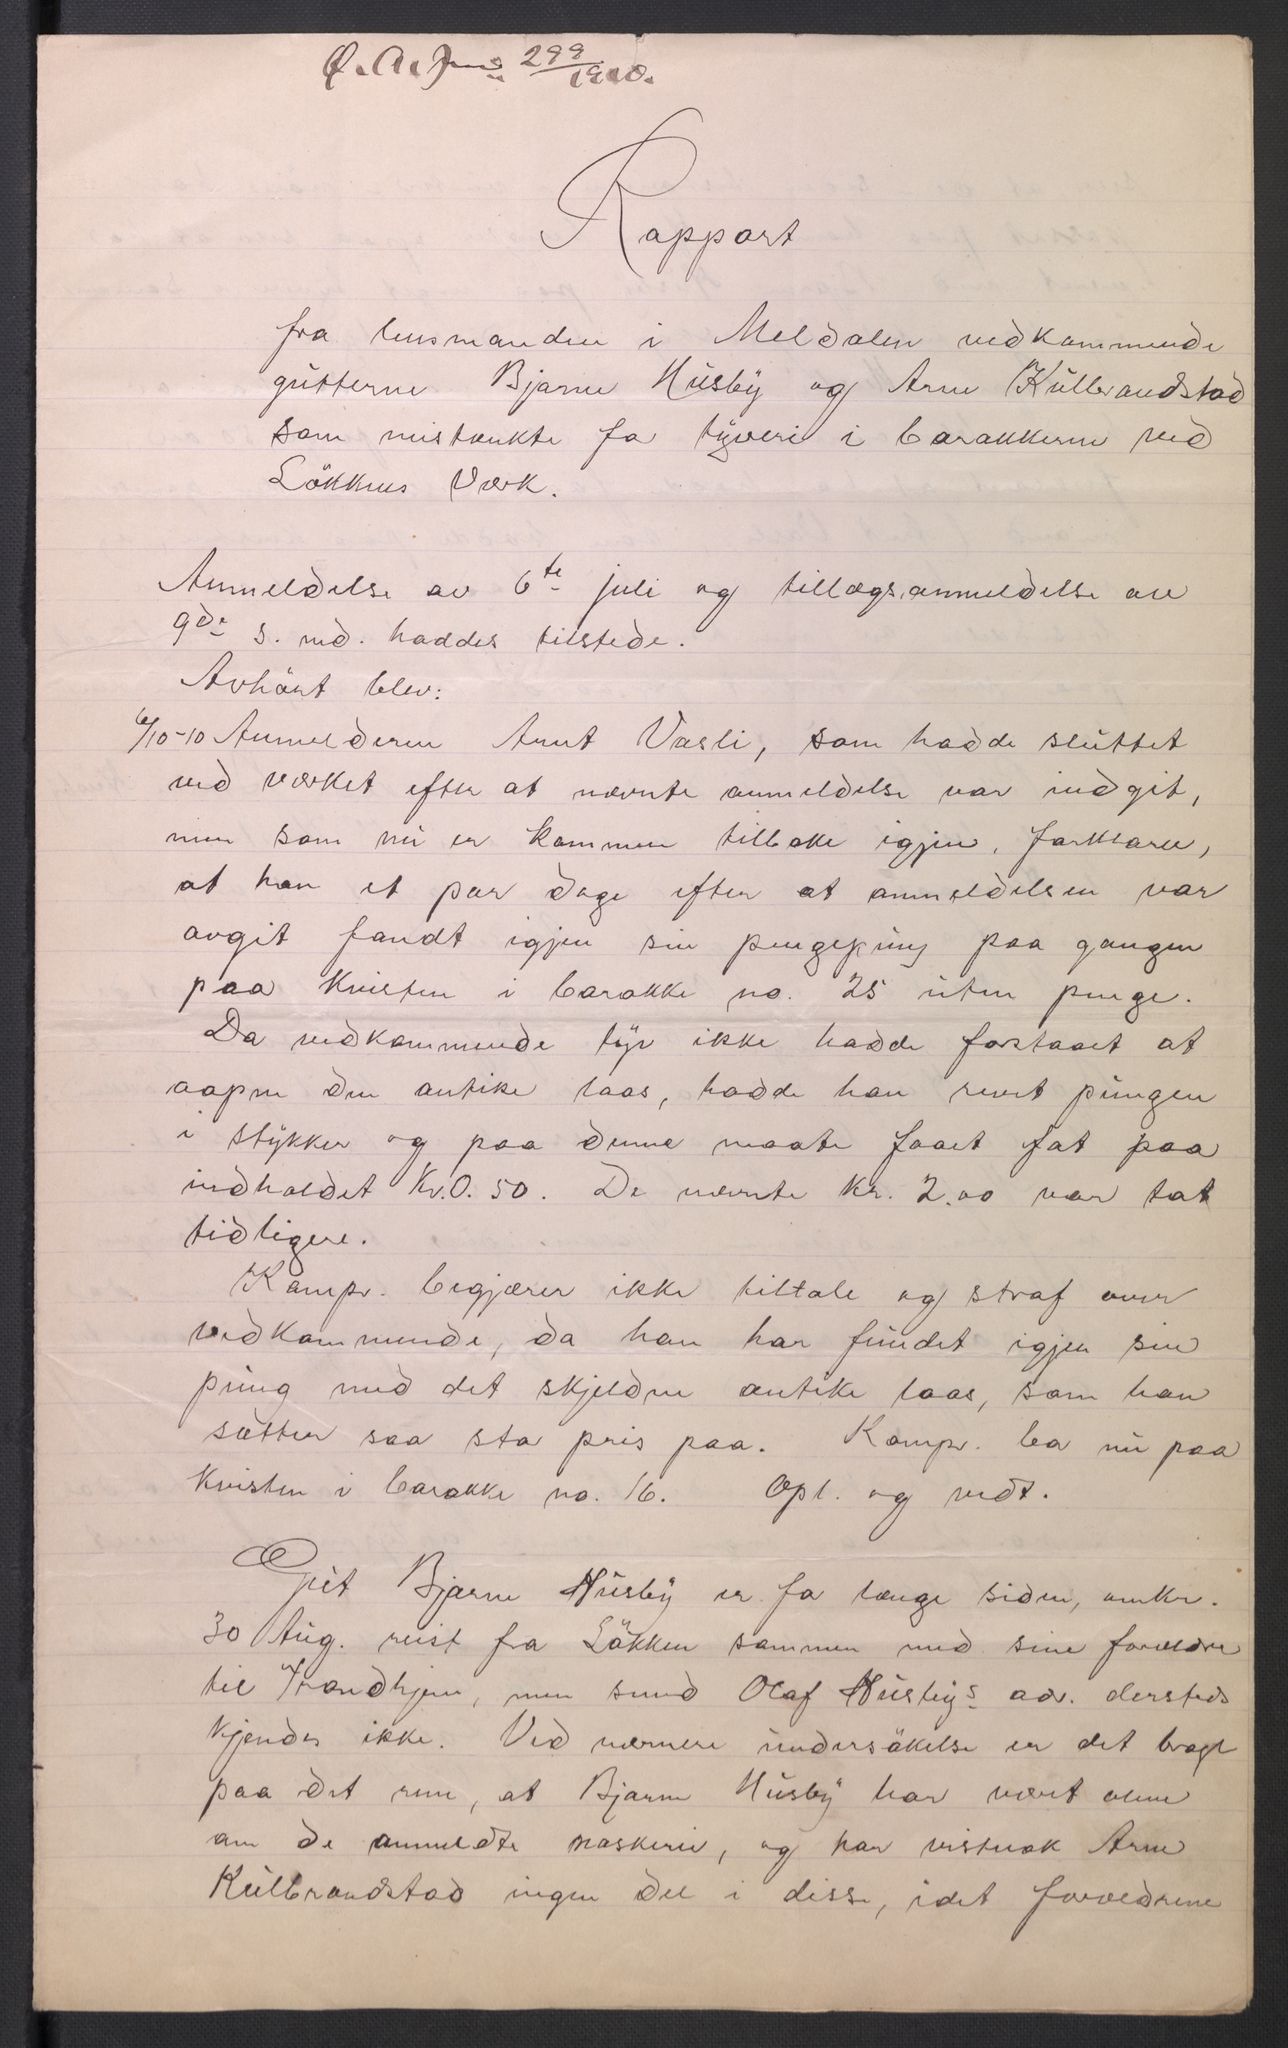 299
1910.
Rapport
fra lensmanden i Meldalen vedkommende
gutterne Bjarne Husby og Arne Kulbrandstad
som mistænkte for tyveri i barakkerne ved
Løkkens Værk.
Anmeldelse av 6te juli og tillægsanmeldelse av
9de s. md. haddes tilstede.
Avhørt blev:
6/10-10 Anmelderen Arnt Vasli, som hadde sluttet
ved verket efter at nævnte anmeldelse var indgit,
men som nu er kommen tilbake igjen, forklarer,
at han et par dage efter at anmeldelsen var
avgit fandt igjen sin pengepung paa gangen
paa kvisten i barakke no. 25 uten penge.
Da vedkommende tyv ikke hadde forstaaet at
aapne den antike laas, hadde han revet pungen
i stykker og paa denne maate faaet fat paa
indholdet Kr. 0.50. De nævnte Kr. 2.00 var tat
tidligere.
Kompr. begjærer ikke tiltale og straf over
vedkommende, da han har fundet igjen sin
pung med det skjeldne antike laas, som han
sætter saa stor pris paa. Kompr. bor nu paa
kvisten i barakke no. 16. Opl. og vedt.
Gut Bjarne Husby er for længe siden, omkr.
30 Aug. reist fra Løkken sammen med sine forældre
til Trondhjem, men smed Olaf Husbys adr. dersteds
kjendes ikke. Ved nærmere undersøkelse er det bragt
paa det rene, at Bjarne Husby har været alene
om de anmeldte naskerier, og har vistnok Arne
Kulbrandstad ingen del i disse, idet forældrene